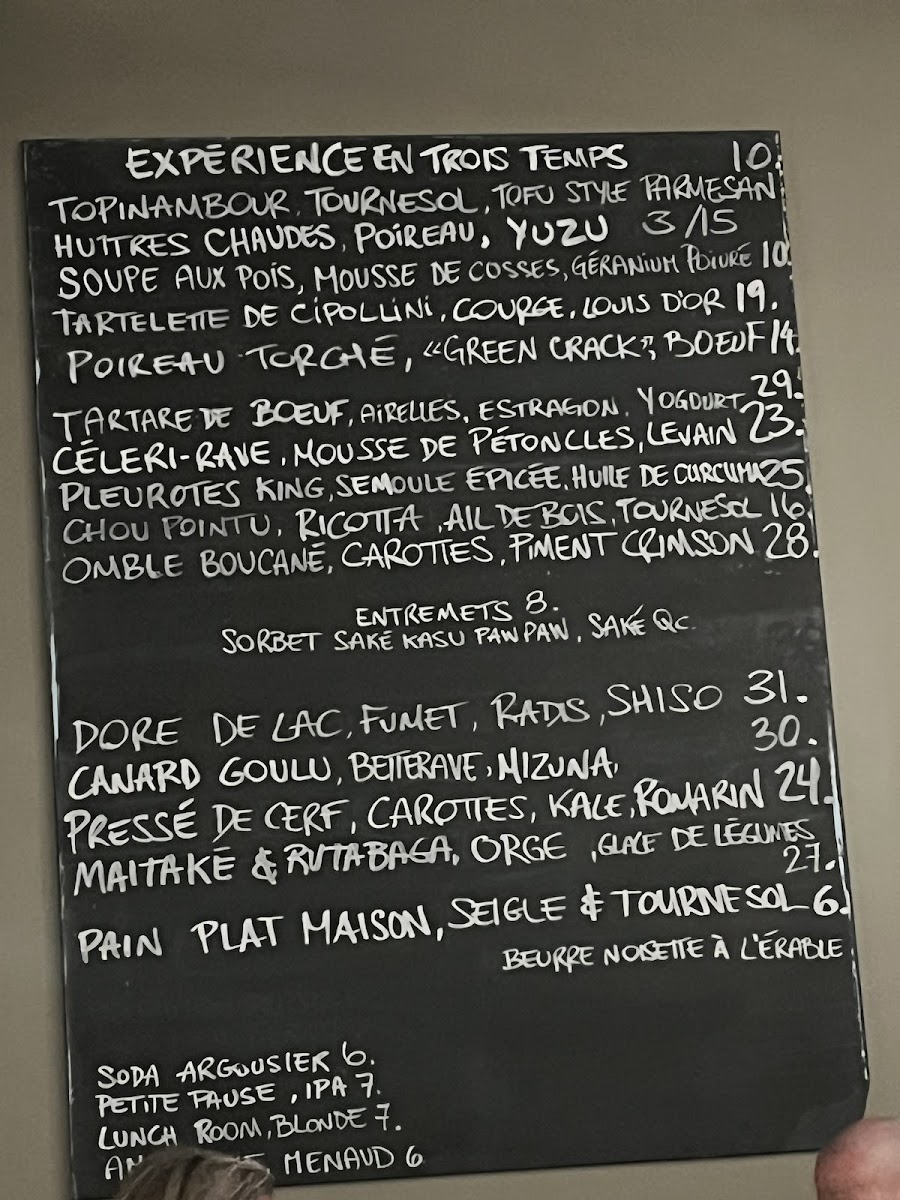 EXPÉRIENCE EN TROIS TEMPS 10.
TOPINAMBOUR, TOURNESOL, TOFU STYLE PARMESAN
HUITRES CHAUDES, POIREAU, YUZU 3/15
SOUPE AUX POIS, MOUSSE DE COSSES, GÉRANIUM POIVRÉ 10.
TARTELETTE DE CIPOLLINI, COURGE, LOUIS D'OR 19.
POIREAU TORCHÉ, «GREEN CRACK», BOEUF 14.
TARTARE DE BOEUF, AIRELLES, ESTRAGON, YOGOURT 29.
CÉLERI-RAVE, MOUSSE DE PÉTONCLES, LEVAIN 23.
PLEUROTES KING, SEMOULE ÉPICÉE, HUILE DE CURCUMA 25.
CHOU POINTU, RICOTTA, AIL DE BOIS, TOURNESOL 16.
OMBLE BOUCANÉ, CAROTTES, PIMENT CRIMSON 28.
ENTREMETS 8.
SORBET SAKÉ KASU PAWPAW, SAKÉ QC.
DORE DE LAC, FUMET, RADIS, SHISO 31.
CANARD GOULU, BETTERAVE, MIZUNA, 30.
PRESSÉ DE CERF, CAROTTES, KALE, ROMARIN 24.
MAITAKÉ & RUTABAGA, ORGE, GLACE DE LÉGUMES
27.
PAIN PLAT MAISON, SEIGLE & TOURNESOL 6.
BEURRE NOISETTE À L'ÉRABLE
SODA ARGOUSIER 6.
PETITE PAUSE, IPA 7.
LUNCH ROOM, BLONDE 7.
MENAUD 6